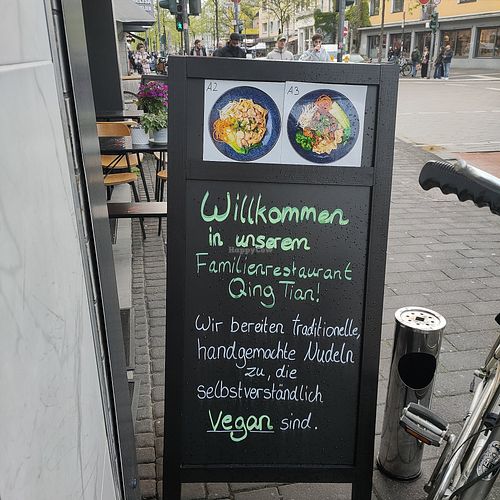 A2
A3
Willkommen
in unserem
Familienrestaurant
Qing Tian!
Wir bereiten traditionelle,
handgemachte Nudeln
zu, die
selbstverständlich
Vegan sind.
HappyCow